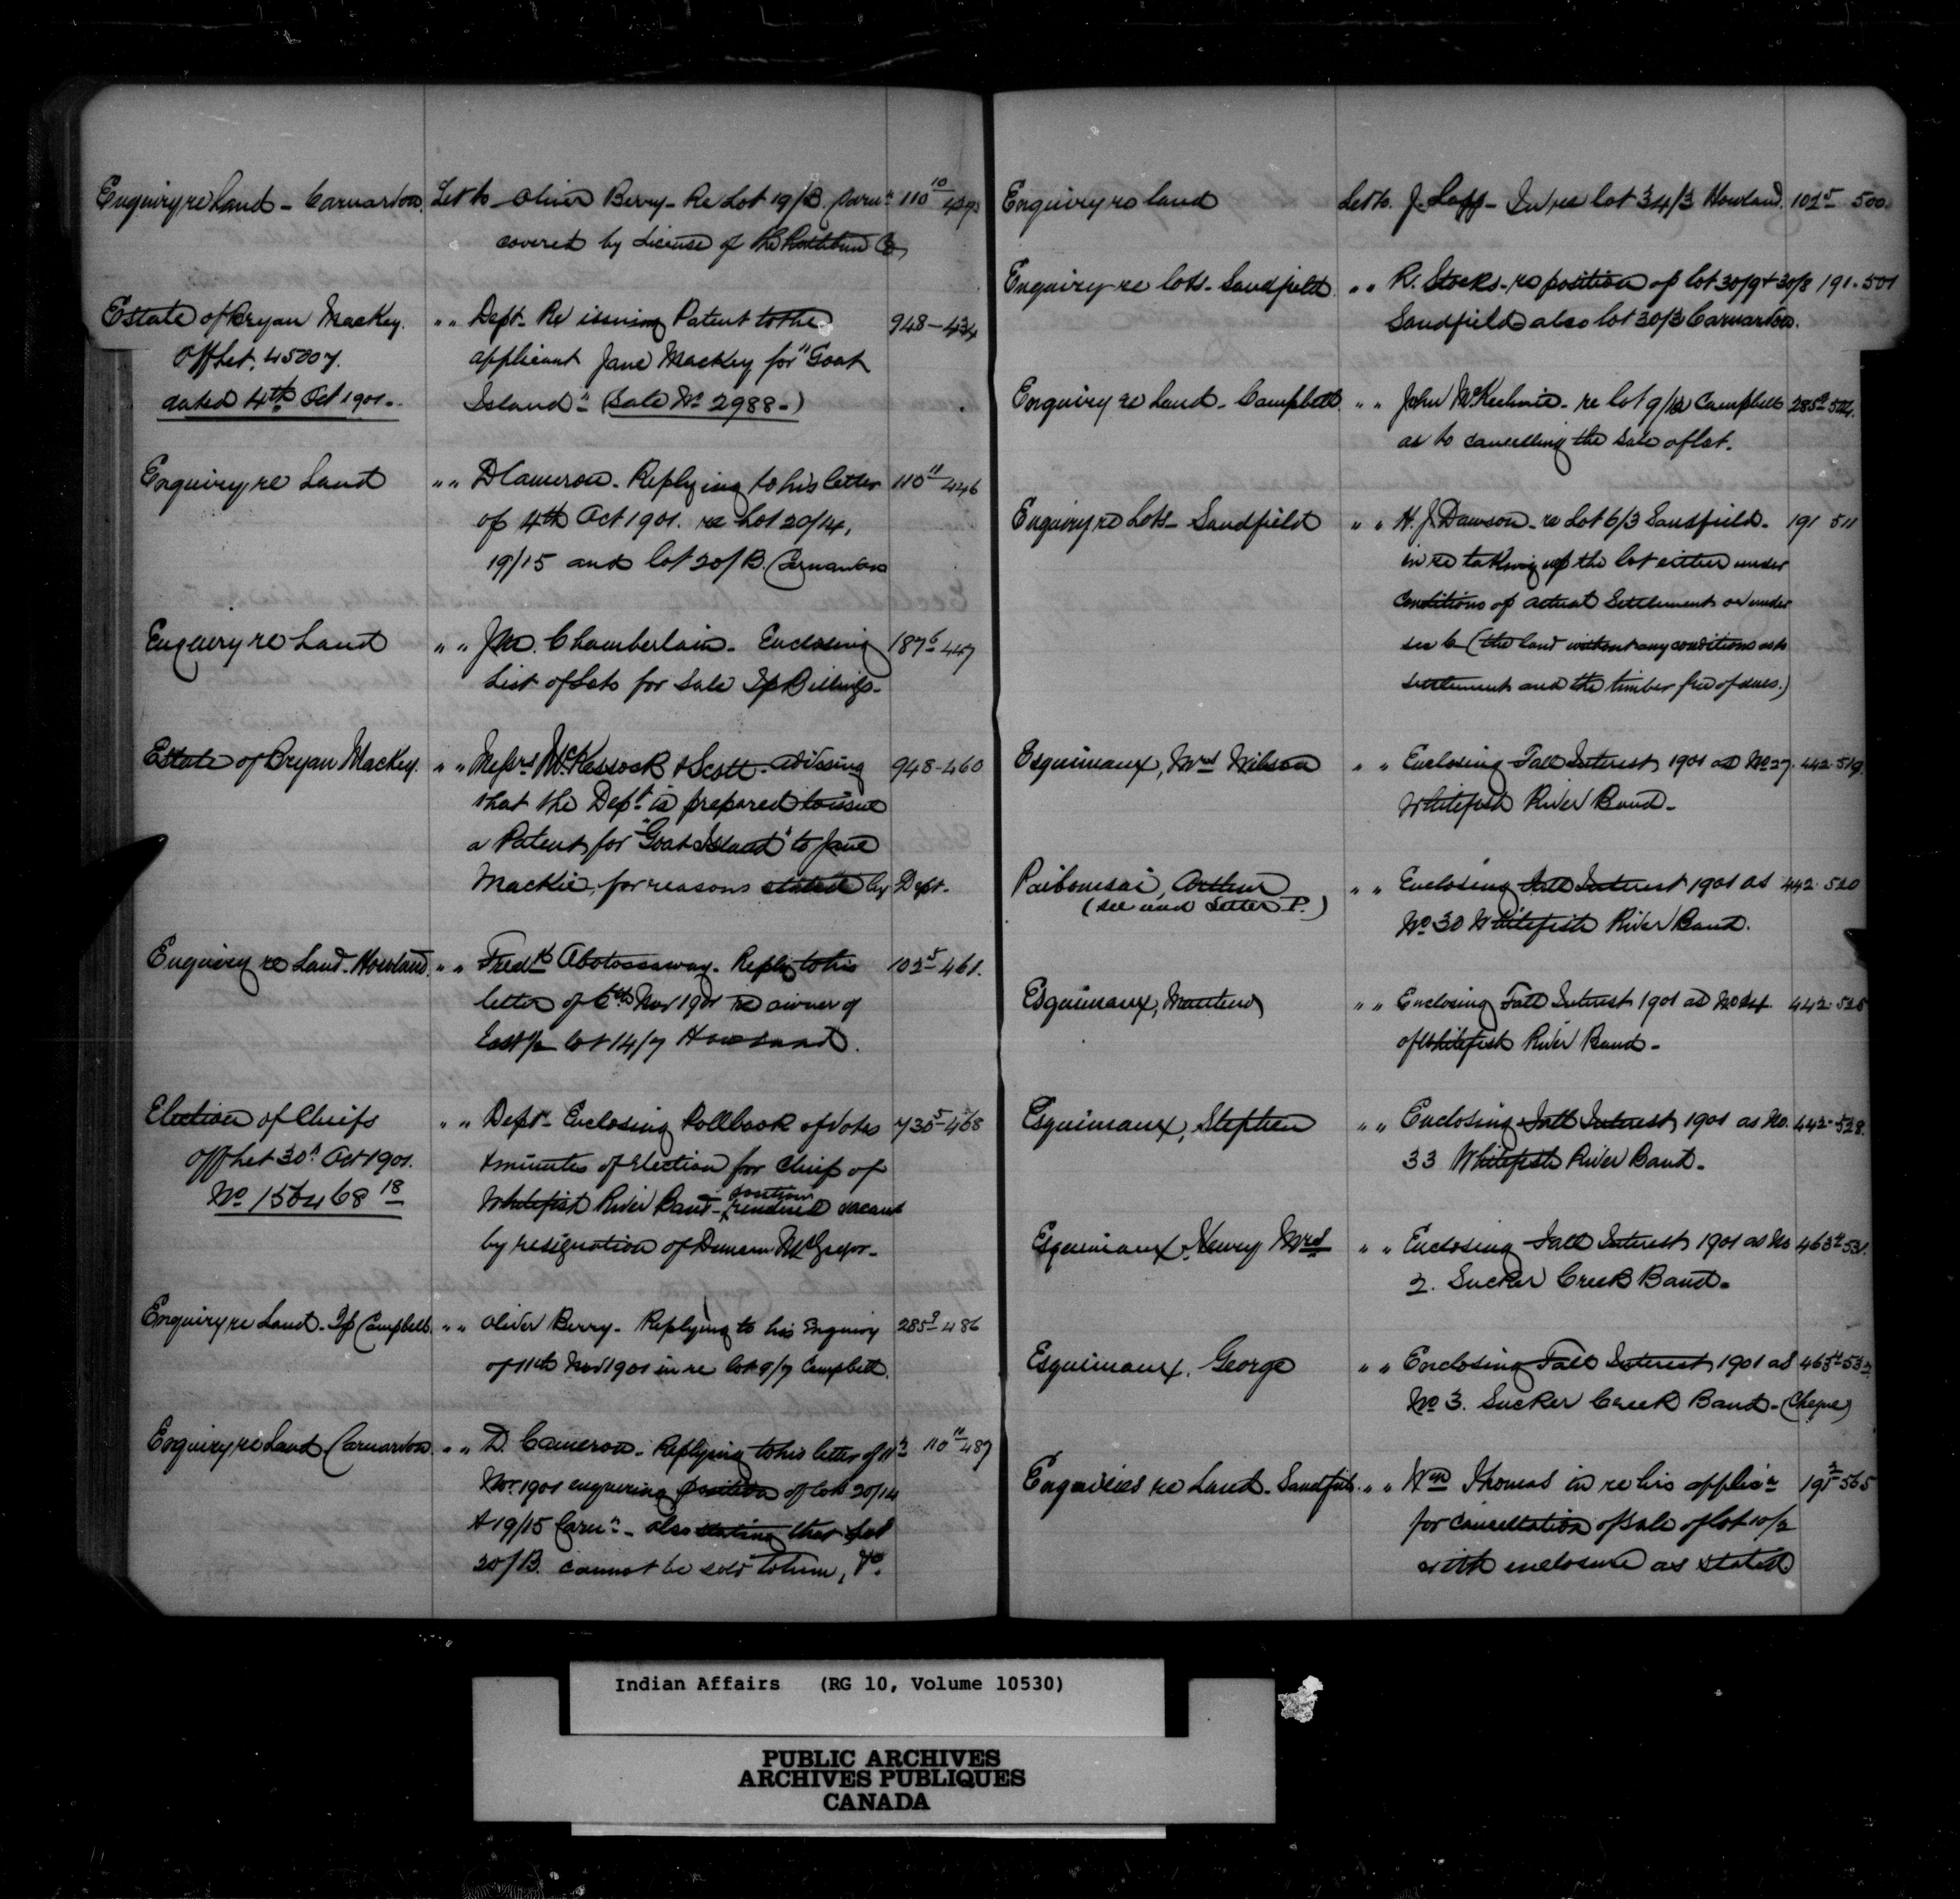 Enquiry re Land - Carnarvon. Let to Oliver Berry - Re Lot 19/B. Carn.n 110 10
covered by License of the Rathbun Co
Estate of Bryan Mackey. " " Dept. Re issuing Patent to the 948-434
Off Let. 45007. applicant Jane Mackey for "Goat
dated 4th Oct 1901. Island" (Sale No 2988-)
Enquiry re Land " " D Cameron. Replying to his letter 110 11 446
of 4th Oct 1901. re Lot 20/14,
19/15 and lot 20/B. Carnarvon
Enquiry re Land " " Jno. Chamberlain. Enclosing 187 6 447
List of Lots for Sale Tp Billings.
Estate of Bryan Mackey. " " Messrs McKessock & Scott. advising 948-460
that the Dept. is prepared to issue
a Patent for "Goat Island" to Jane
Mackie, for reasons stated by Dept.
Enquiry re Land. Howland. " " Fredk Abotossaway. Reply to his 102 5 461.
letter of 6th Nov 1901 re owner of
East ½ lot 14/7 Howland.
Election of Chiefs " " Dept. Enclosing Pollbook of Votes 735 5 468
Off Let 30th Oct 1901. & minutes of Election for Chief of
No 156468 18 Whitefish River Band - position rendered vacant
by resignation of Duncan McGregor -
Enquiry re Land. Tp Campbell. " " Oliver Berry. Replying to his Enquiry 285 9 486
of 11th Nov 1901 in re lot 9/7 Campbell.
Enquiry re Land Carnarvon. " " D. Cameron. Replying to his letter of 11th 110 11 487
Nov. 1901 enquiring position of lots 20/14
& 19/15 Carn.n - also stating that Lot
20/B. cannot be sold to him, &c.
Enquiry re land Let to. J. - In re lot 34/3 Howland. 102 5 500.
Enquiry re lots - Sandfield " " R. Stocks - re position of lot 30/9 + 30/8 191-501
Sandfield also lot 30/3 Carnarvon.
Enquiry re Land - Campbell. " " John McKechnie - re lot 9/12 Campbell 285 9
as to cancelling the sale of lot.
Enquiry re Lots - Sandfield " " H. J. Dawson - re Lot 6/3 Sandfield - 191 511
in re taking up the lot either under
conditions of actual Settlement or under
sec 6 (the land without any conditions as to
settlement and the timber free of dues.)
Esquimaux, Mrs Wilson " " Enclosing Fall Interest 1901 as No 27. 442-519.
Whitefish River Band -
Paibomsai, Arthur " " Enclosing Fall Interest 1901 as 442-520
(see under Letter P.) No 30 Whitefish River Band.
Esquimaux, Matthew " " Enclosing Fall Interest 1901 as No 24. 442-525
of Whitefish River Band -
Esquimaux, Stephen " " Enclosing Fall Interest 1901 as No. 442-528.
33 Whitefish River Band -
Esquimaux, Henry Mrs " " Enclosing Fall Interest 1901 as No 463 4 531.
2. Sucker Creek Band -
Esquimaux, George " " Enclosing Fall Interest 1901 as 463 4
No 3. Sucker Creek Band - (Cheque)
Enquiries re Land - Sandfield. " " Wm Thomas in re his applicn 191 2 565
for cancellation of sale of lot 10/2
with enclosure as stated
Indian Affairs (RG 10, Volume 10530)
PUBLIC ARCHIVES
ARCHIVES PUBLIQUES
CANADA